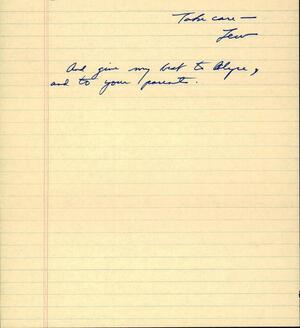 Take care —
Lew
And give my best to Alyce,
and to your parents.